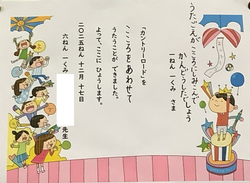 うたごえが こころにしみこんで
かんどうしたで しょう
一ねん 一くみ さま
「カントリーロード」を
こころをあわせて
うたうことが できました。
よって、ここに ひょうします。
二〇二五ねん 十二月 十七日
六ねん 一くみ
先生